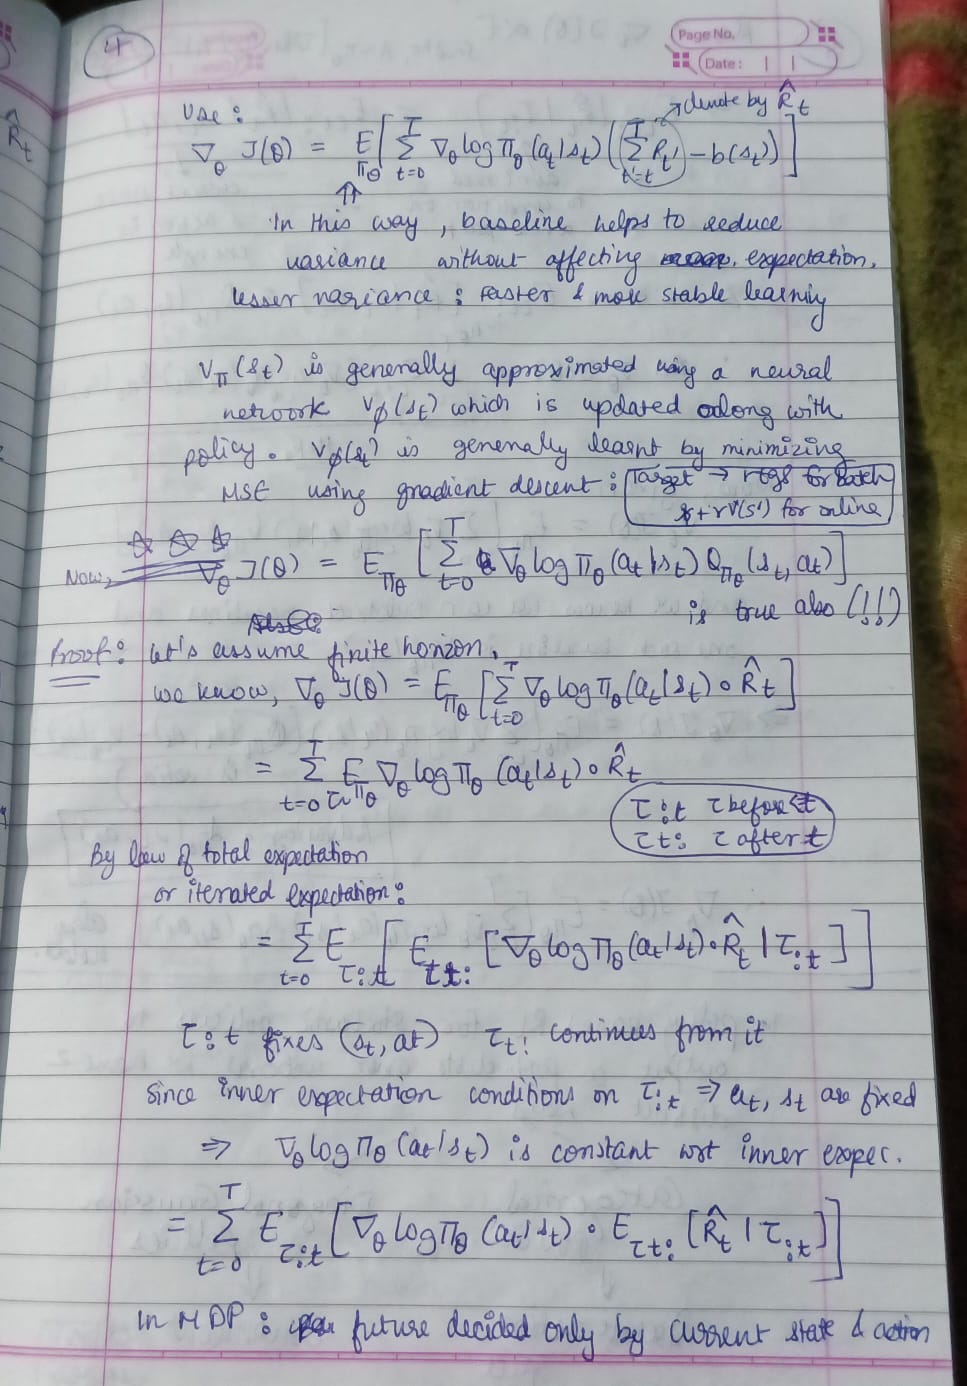 4
Page No.
Date:
R̂t
Use:
→ denote by R̂t
∇θ J(θ) = E_πθ [ Σ_{t=0}^{T} ∇θ log πθ (at|st) ( Σ_{t'=t}^{T} Rt' - b(st) ) ]
In this way, baseline helps to reduce
variance without affecting expectation,
lesser variance : Faster & more stable learning
Vπ(st) is generally approximated using a neural
network Vφ(st) which is updated along with
policy. Vφ(st) is generally learnt by minimizing
MSE using gradient descent :
Target → rtgs for batch
r+rV(s') for online
Now, ∇θ J(θ) = E_πθ [ Σ_{t=0}^{T} ∇θ log πθ (at|st) Q_πθ (st, at) ]
is true also (!!)
Proof: let's assume finite horizon,
we know, ∇θ J(θ) = E_πθ [ Σ_{t=0}^{T} ∇θ log πθ (at|st) ∘ R̂t ]
= Σ_{t=0}^{T} E_{τ~πθ} ∇θ log πθ (at|st) ∘ R̂t
τ:t τ before t
τt: τ after t
By law of total expectation
or iterated expectation:
= Σ_{t=0}^{T} E_{τ:t} [ E_{τt:} [ ∇θ log πθ (at|st) ∘ R̂t | τ:t ] ]
τ:t fixes (st, at) τt: continues from it
since inner expectation conditions on τ:t ⇒ at, st are fixed
⇒ ∇θ log πθ (at|st) is constant wrt inner expec.
= Σ_{t=0}^{T} E_{τ:t} [ ∇θ log πθ (at|st) ∘ E_{τt:} [ R̂t | τ:t ] ]
In MDP : future decided only by current state & action